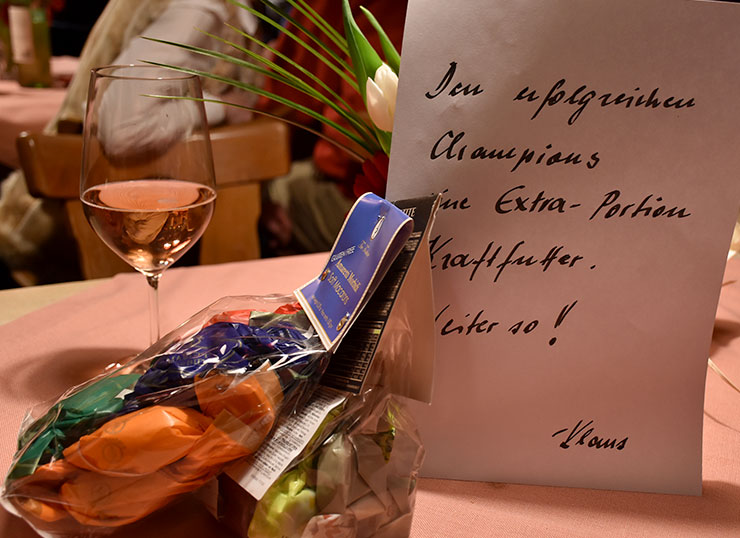 Den erfolgreichen
Champions
ine Extra-Portion
Kraftfutter.
eiter so!
-Klaus